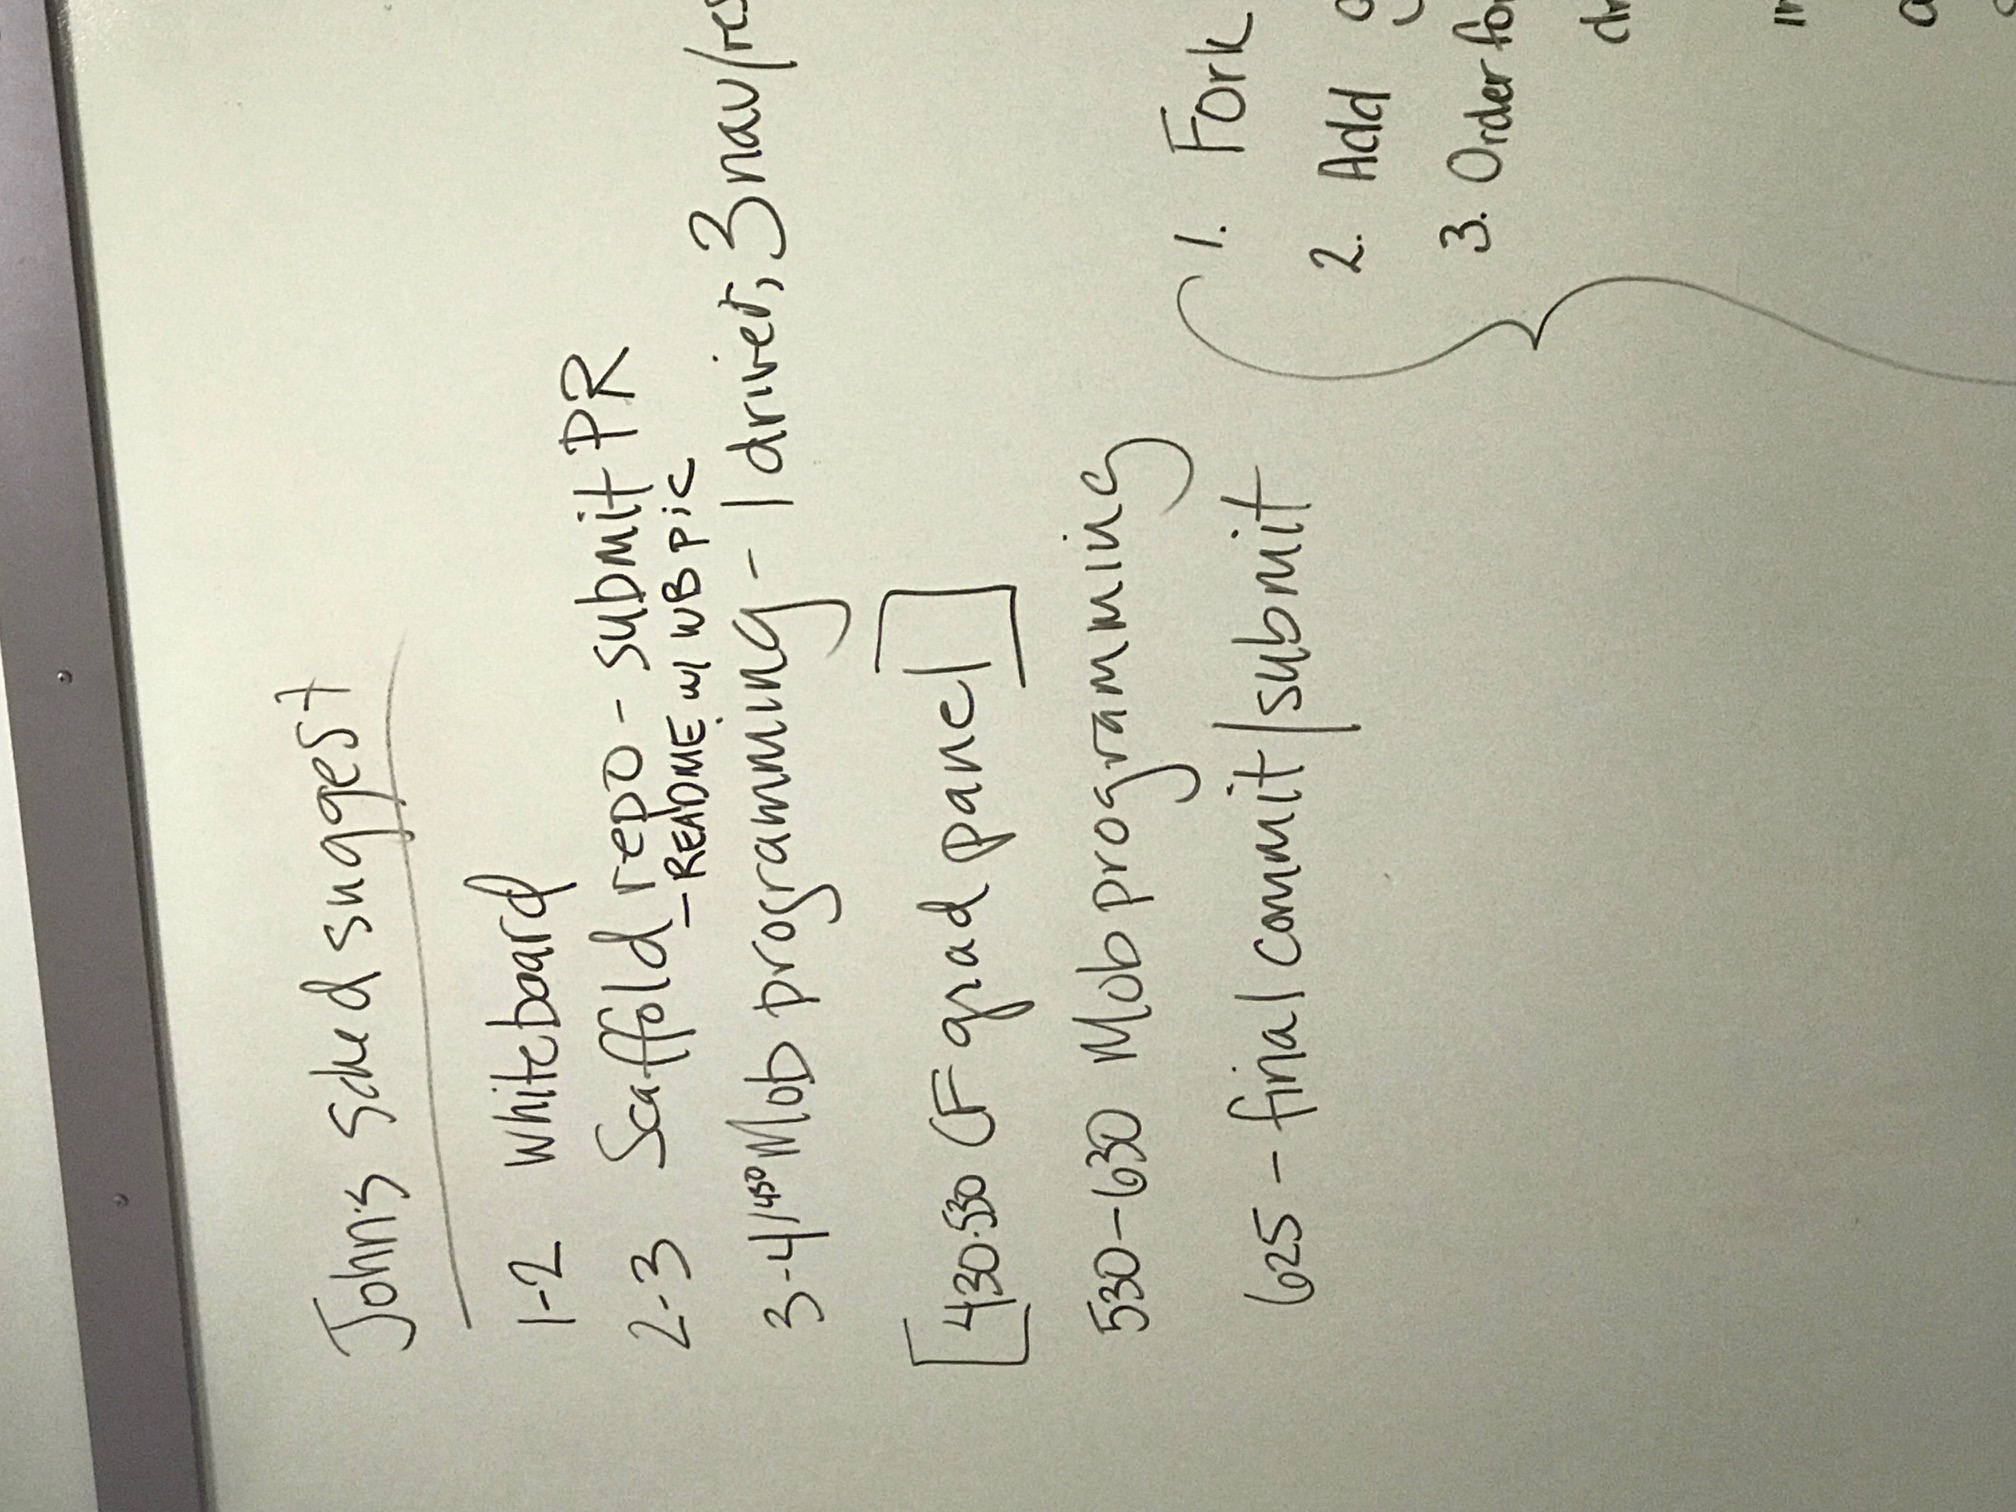 John's sched suggest
1-2 Whiteboard
2-3 Scaffold repo - submit PR
- README w/ WB pic
3-4/430 Mob programming - 1 driver, 3 nav/res
[430-530 CF grad panel]
530-630 Mob programming
625 - final commit/submit
1. Fork
2. Add
3. Order for